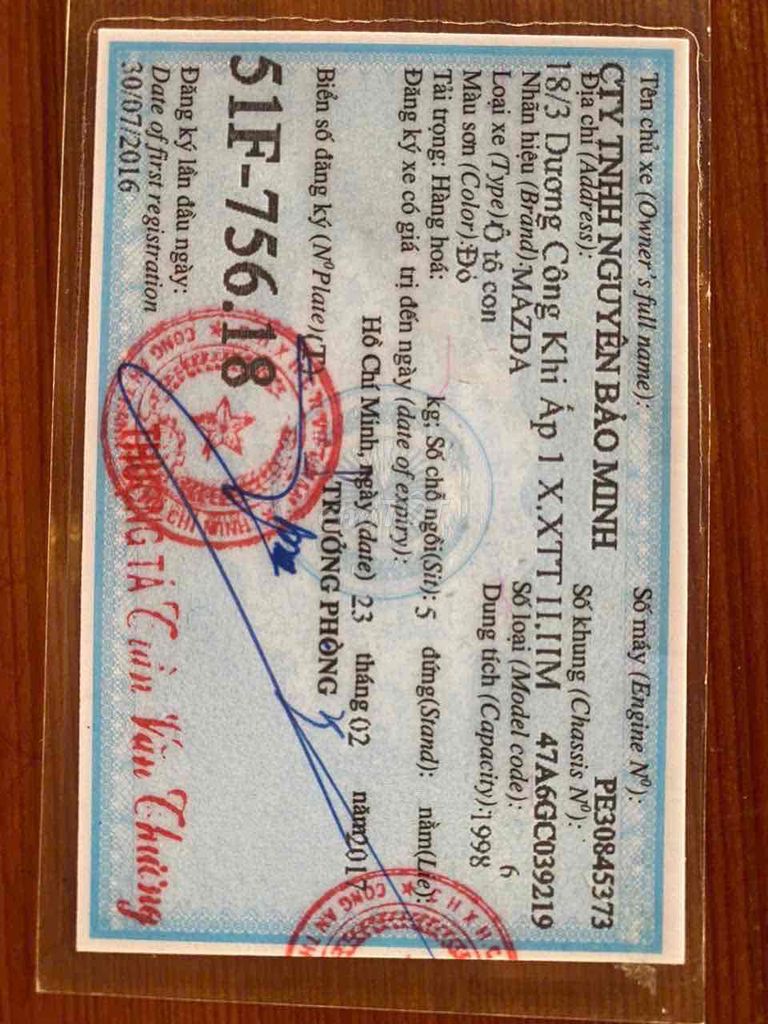 Tên chủ xe (Owner's full name): Số máy (Engine Nº):
CTY TNHH NGUYÊN BẢO MINH PE30845373
Địa chỉ (Address): Số khung (Chassis Nº):
18/3 Dương Công Khi Ấp 1 X.XTT H.HM 47A6GC039219
Nhãn hiệu (Brand): MAZDA Số loại (Model code): 6
Loại xe (Type): Ô tô con Dung tích (Capacity): 1998
Màu sơn (Color): Đỏ
Tải trọng: Hàng hoá: kg; Số chỗ ngồi(Sit): 5 đứng(Stand): nằm(Lie):
Đăng ký xe có giá trị đến ngày (date of expiry):
Hồ Chí Minh, ngày (date) 23 tháng 02 năm 2017
Biển số đăng ký (NºPlate) (T) TRƯỞNG PHÒNG
51F-756.18
Đăng ký lần đầu ngày:
Date of first registration
30/07/2016
THƯỢNG TÁ Trần Văn Thương